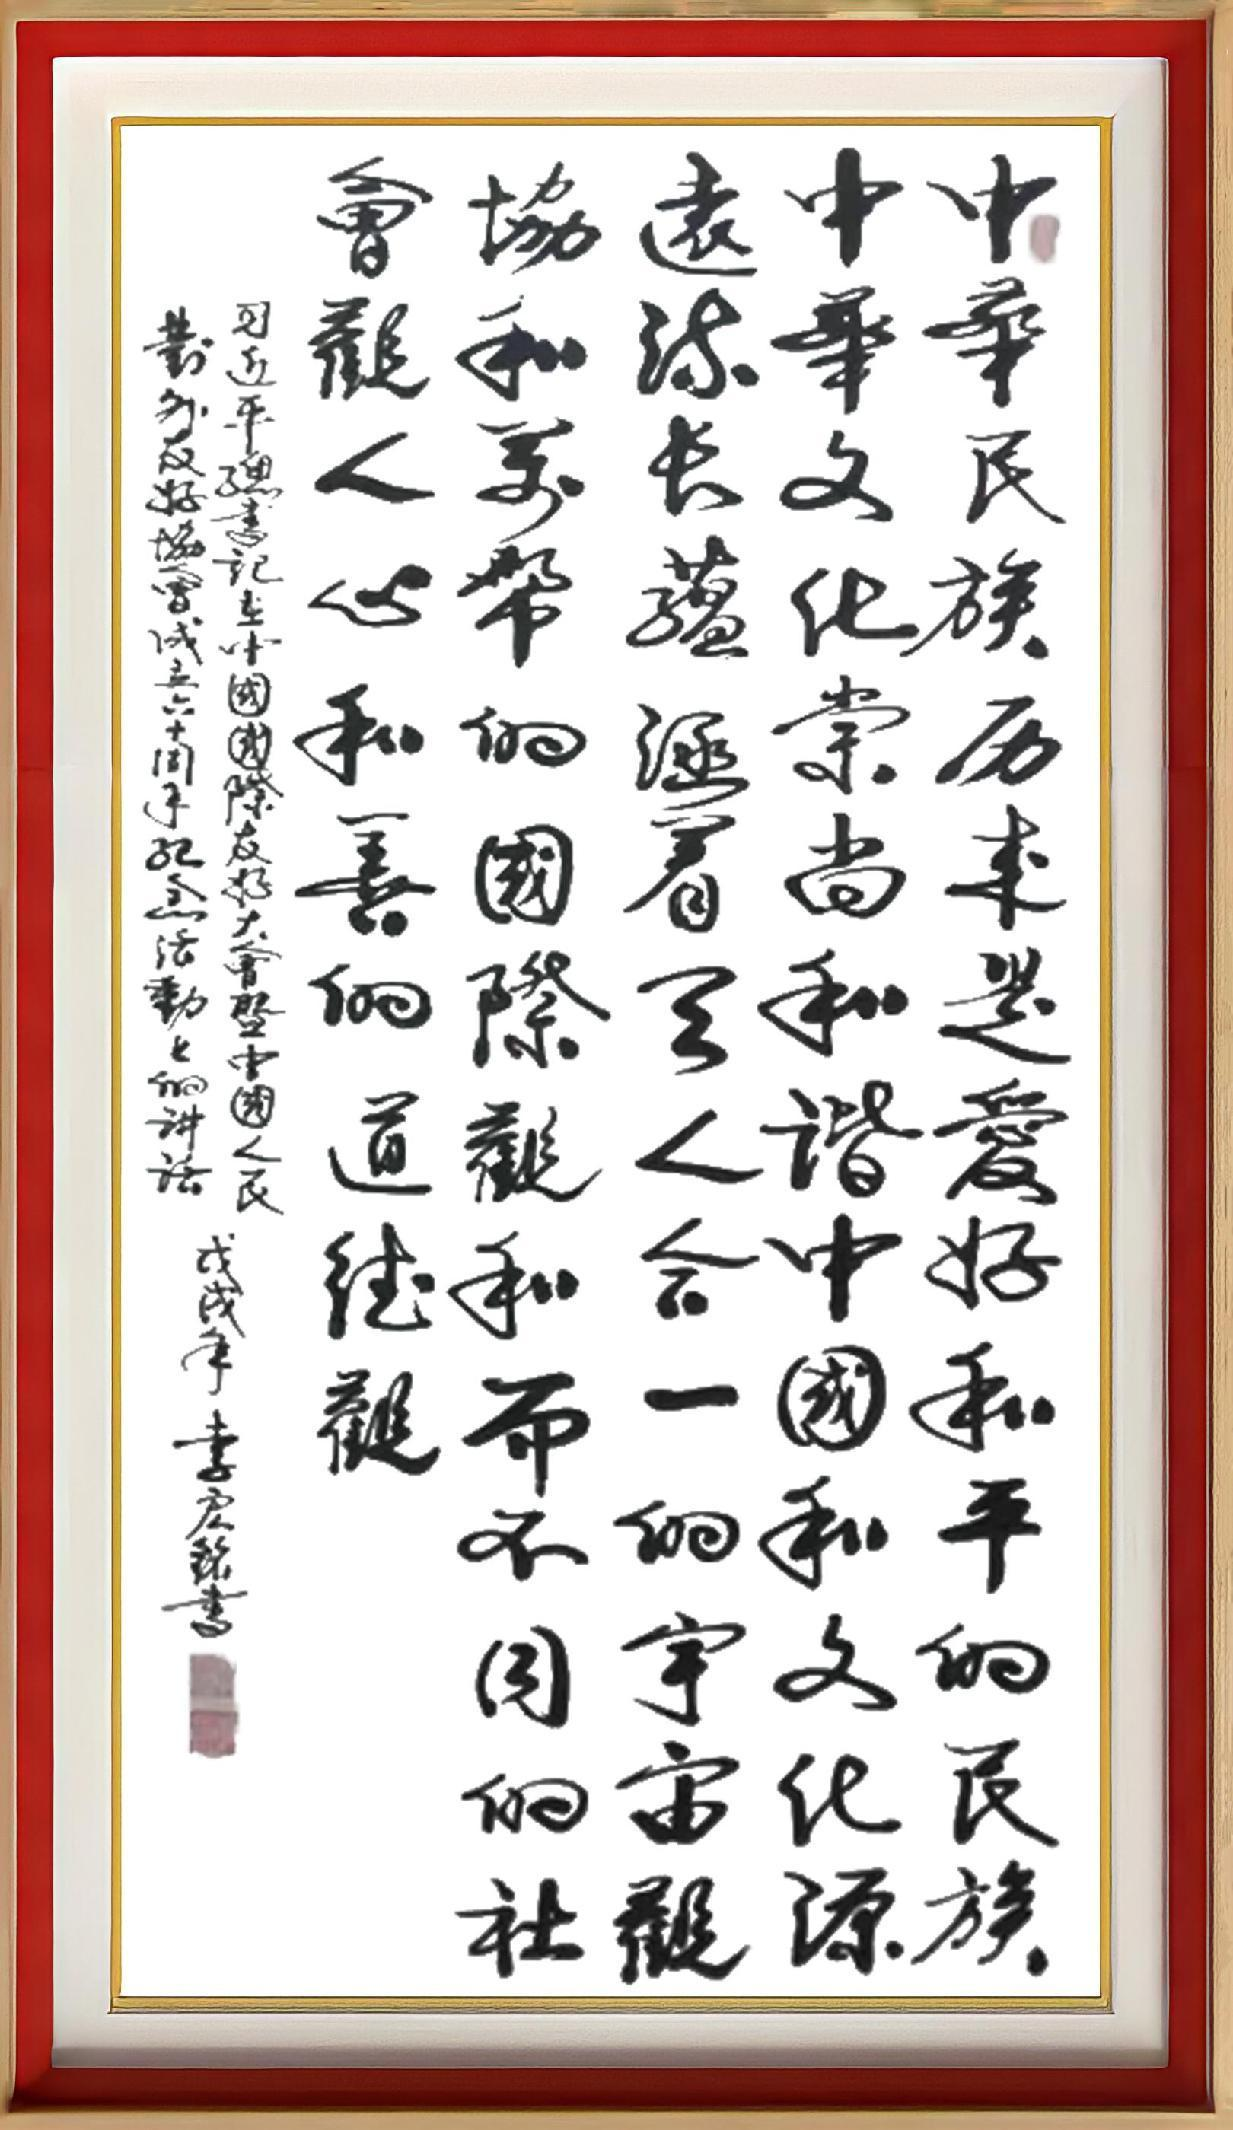 中華民族历来是愛好和平的民族
中華文化崇尚和諧中國和文化源
遠流长蘊涵着天人合一的宇宙觀
協和萬帮的國際觀和而不同的社
會觀人心和善的道德觀
习近平總書記在中國國際友好大會暨中國人民
對外友好協會成立六十周年紀念活動上的讲话
戊戌年 李銘書